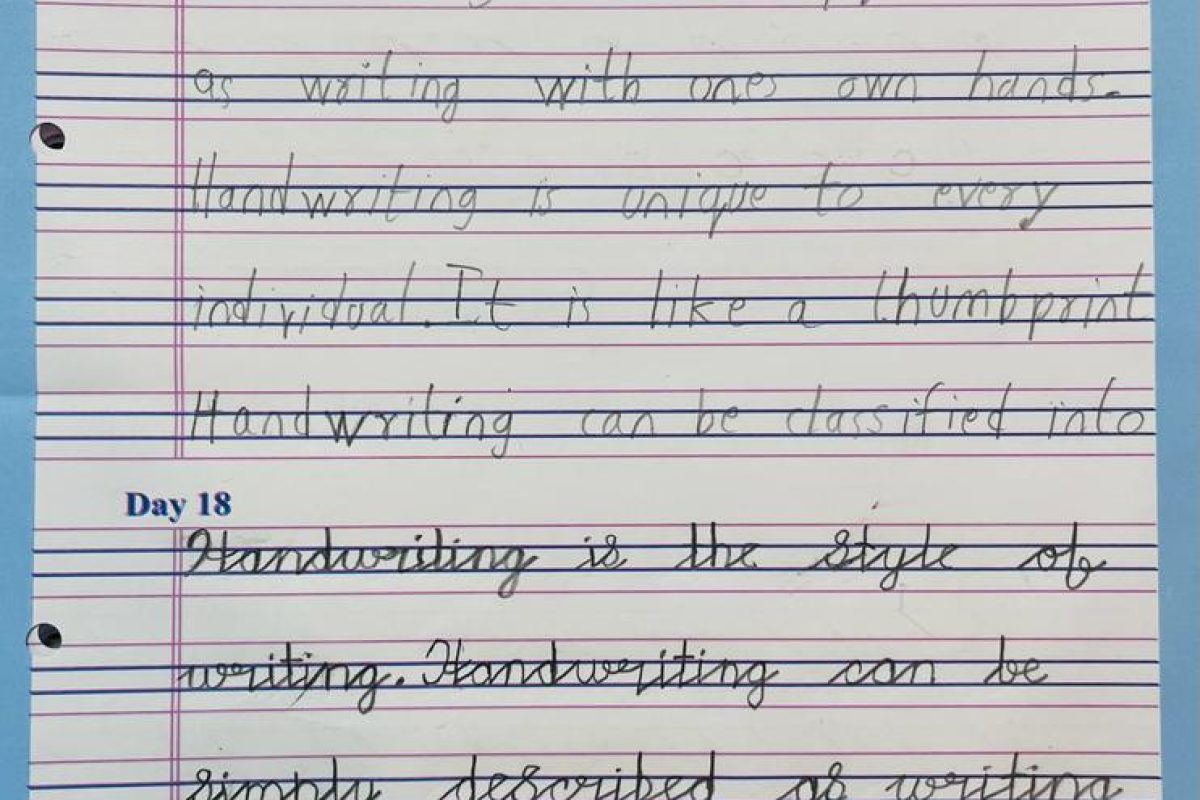 as writing with ones own hands.
Handwriting is unique to every
individual. It is like a thumbprint
Handwriting can be classified into
Day 18
Handwriting is the style of
writing. Handwriting can be
simply described as writing